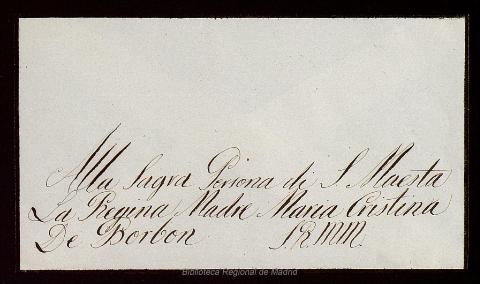 Alla Sagra Persona di S. Maesta
La Regina Madre Maria Cristina
De Borbon S.R.M.M.
Biblioteca Regional de Madrid